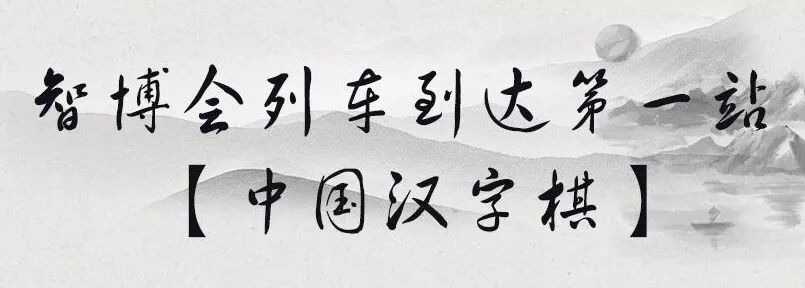 智博会列车到达第一站
【中国汉字棋】